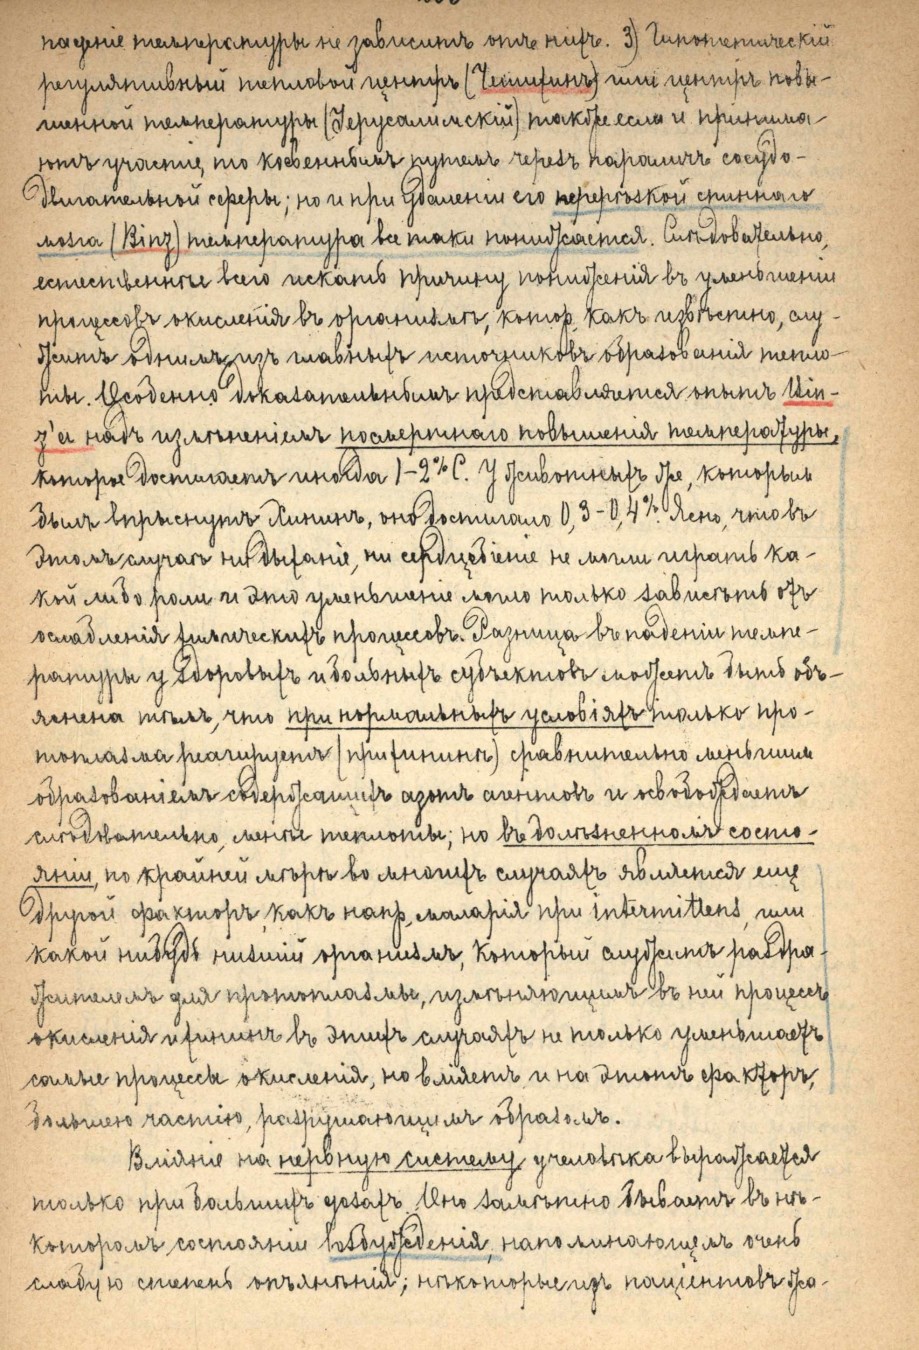 паденіе температуры не зависитъ отъ нихъ. 3) Гипотетическій
регулятивный тепловой центръ (Чешихинъ) или центръ повы-
шенной температуры (Іерусалимскій) также если и принима-
ютъ участіе, то косвеннымъ путемъ черезъ параличъ сосудо-
двигательной сферы; но и при удаленіи его перерѣзкой спиннаго
мозга (Binz) температура все таки понижается. Слѣдовательно,
естественнѣе всего искать причину пониженія въ уменьшеніи
процессовъ окисленія въ организмѣ, котор. какъ извѣстно, слу-
житъ однимъ изъ главныхъ источниковъ образованія тепло-
ты. Особенно доказательнымъ представляется опытъ Bin-
z'a надъ измѣненіемъ посмертнаго повышенія температуры,
которое достигаетъ иногда 1-2% C. У животныхъ же, которымъ
былъ впрыснутъ Хининъ, оно достигало 0,3-0,4%. Ясно, что въ
этомъ случаѣ ни дыханіе, ни сердцебіеніе не могли играть ка-
кой либо роли и это уменьшеніе могло только зависѣть отъ
ослабленія химическихъ процессовъ. Разница въ паденіи темпе-
ратуры у здоровыхъ и больныхъ субъектовъ можетъ быть объ-
яснена тѣмъ, что при нормальныхъ условіяхъ только про-
топлазма реагируетъ (при хининѣ) сравнительно меньшимъ
образованіемъ содержащихъ азотъ агентовъ и освобождаетъ
слѣдовательно, менѣе теплоты; но въ болѣзненномъ состо-
яніи, по крайней мѣрѣ во многихъ случаяхъ является еще
другой факторъ, какъ напр. маларія при intermittens, или
какой нибудь низшій организмъ, который служитъ раздра-
жителемъ для протоплазмы, измѣняющимъ въ ней процессъ
окисленія и хининъ въ этихъ случаяхъ не только уменьшаетъ
самые процессы окисленія, но вліяетъ и на этотъ факторъ,
большею частію, разрушающимъ образомъ.
Вліяніе на нервную систему у человѣка выражается
только при большихъ дозахъ. Оно замѣтно бываетъ въ нѣ-
которомъ состояніи возбужденія, напоминающемъ очень
слабую степень опьянѣнія; нѣкоторые изъ паціентовъ жа-